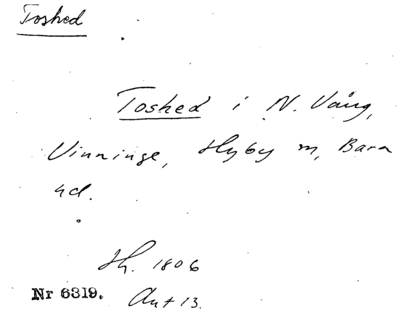 Toshed
Toshed i N. Vång,
Vinninge, Hyby m, Bara
hd.
H. 1806
Nr 6319. Akt 13.